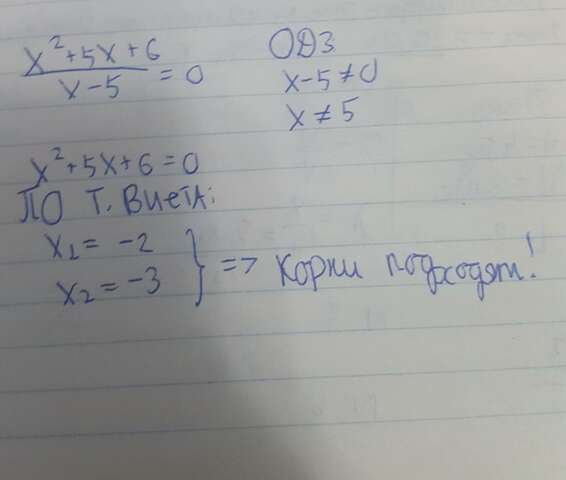 x²+5x+6 / x-5 = 0
ОДЗ
x-5≠0
x≠5
x²+5x+6=0
ПО Т. ВИЕТА:
x₁= -2
x₂= -3 } => корни подходят!